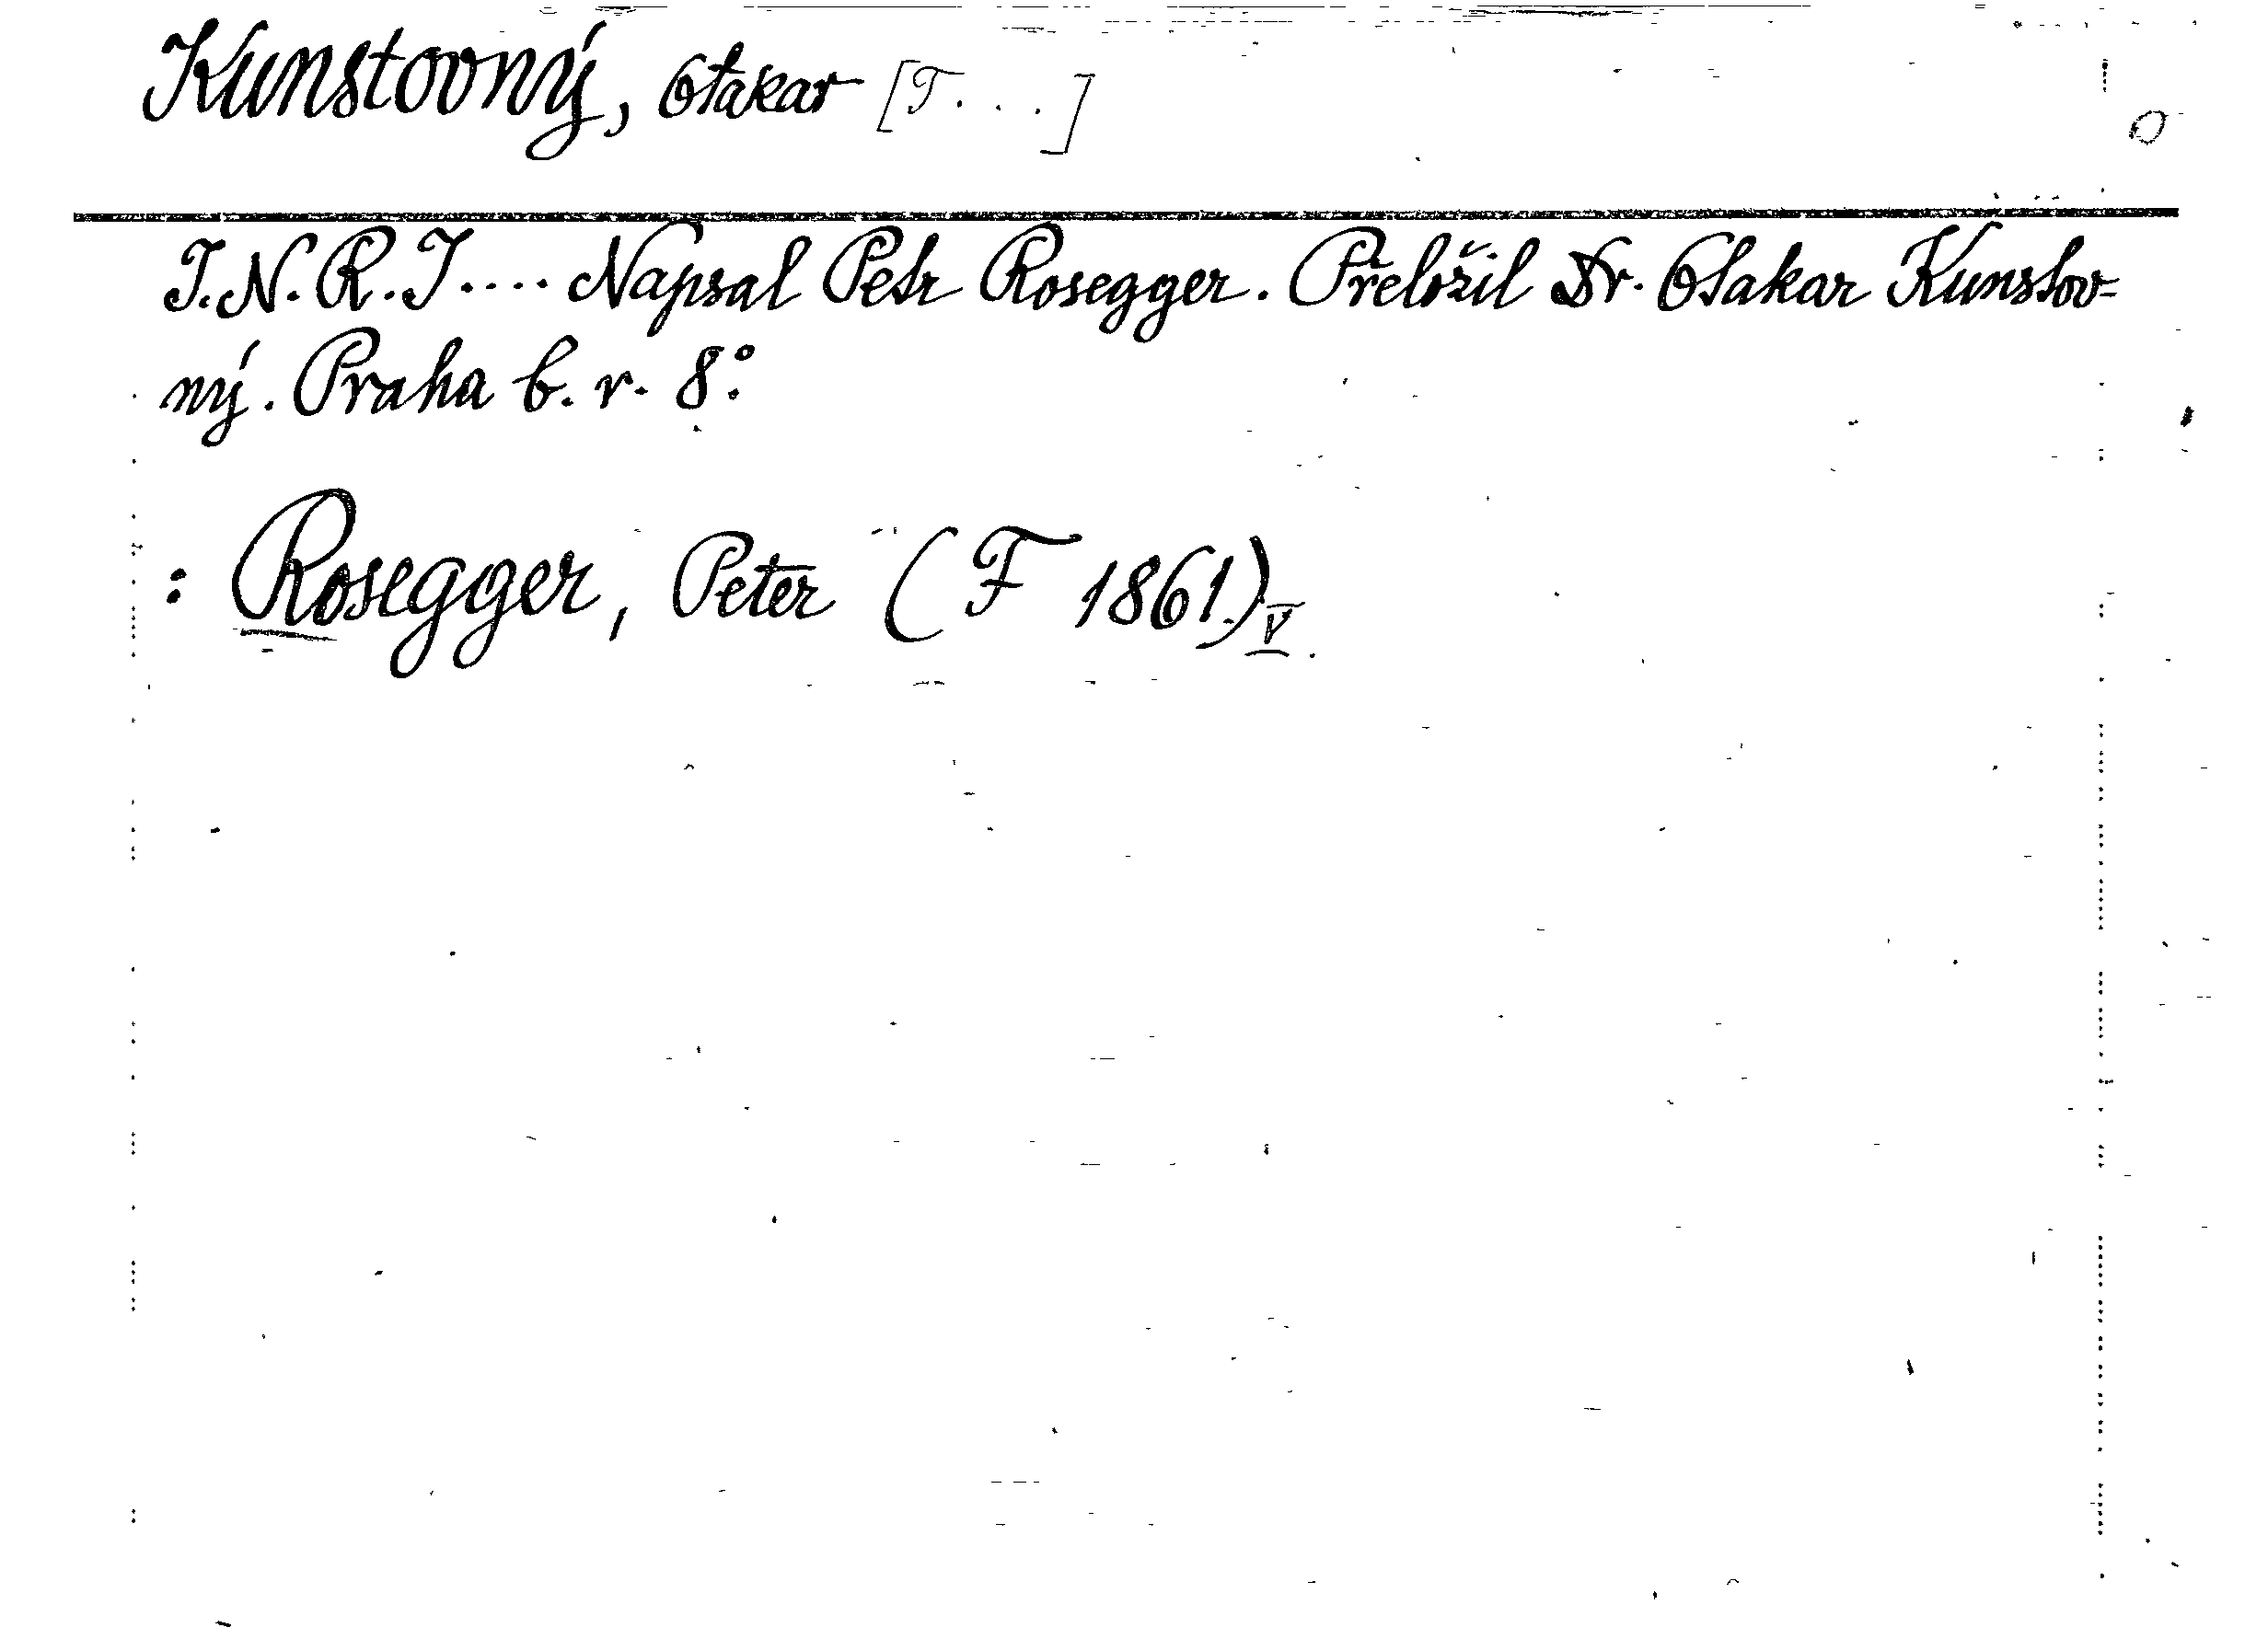 Kunstovný, Otakar [T. . .]
J.N.R.J.... Napsal Petr Rosegger. Přeložil Dr. Otakar Kunstov=
ný. Praha b. r. 8°.
: Rosegger, Peter (F 1861.) V.